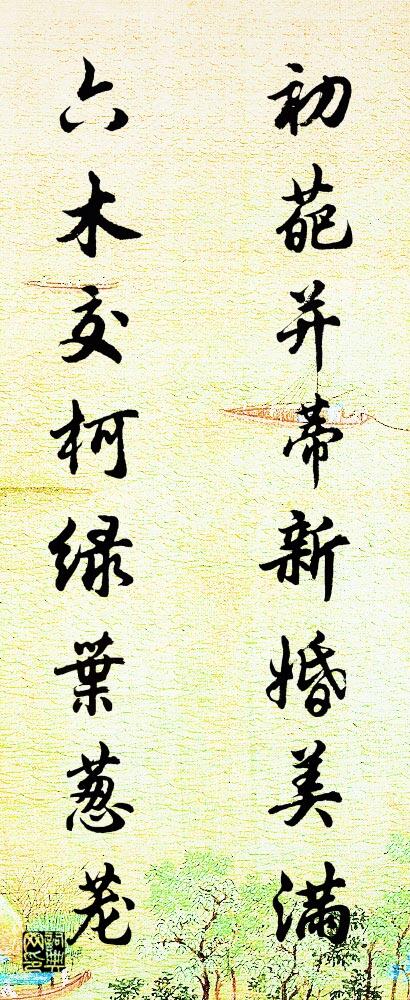 初葩并蒂新婚美满
六木交柯绿葉葱茏